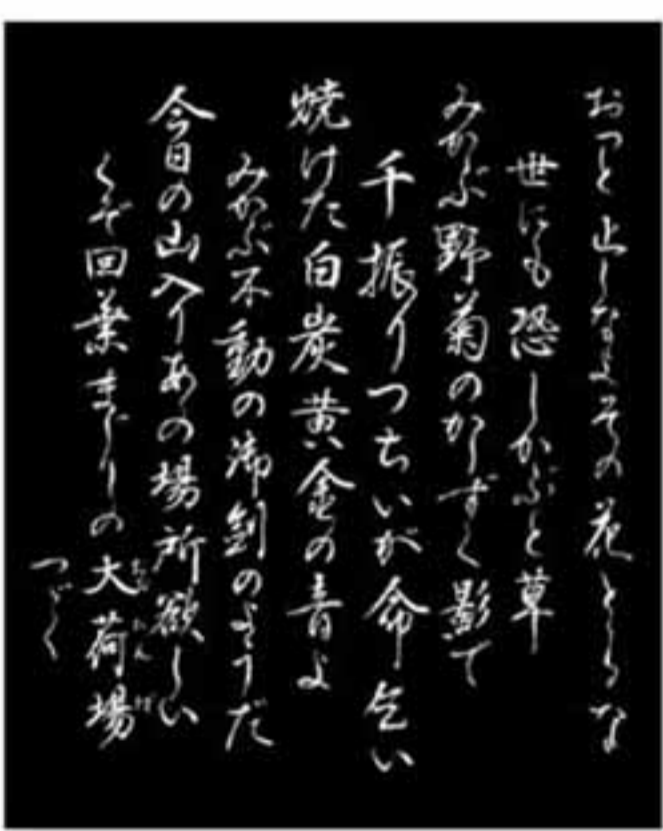 おっと止しなよその花とるな
世にも恐しかぶと草
みかぶ野菊のかしずく影で
千振りつちいが命乞い
焼けた白炭黄金の音よ
みかぶ不動の御剣のようだ
今日の山入りあの場所欲しい
くぞ回葉まじりの大荷場
つづく